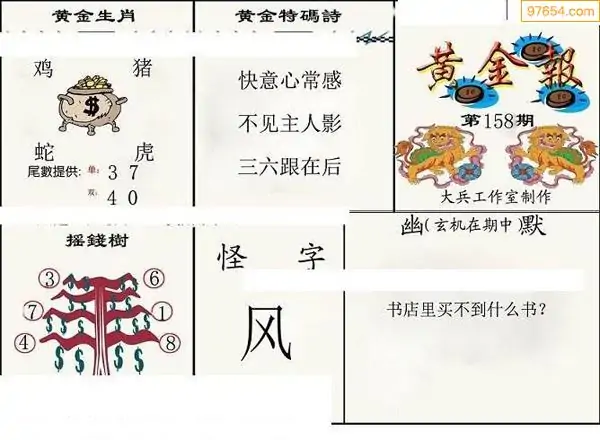 97654.com
黄金生肖
鸡 猪
$
蛇 虎
尾數提供: 单: 3 7
双: 4 0
黄金特碼詩
快意心常感
不见主人影
三六跟在后
黄金報
第158期
大兵工作室制作
摇錢樹
③ ⑥
⑦ ①
④ ⑧
怪 字
风
幽(玄机在期中)默
书店里买不到什么书?